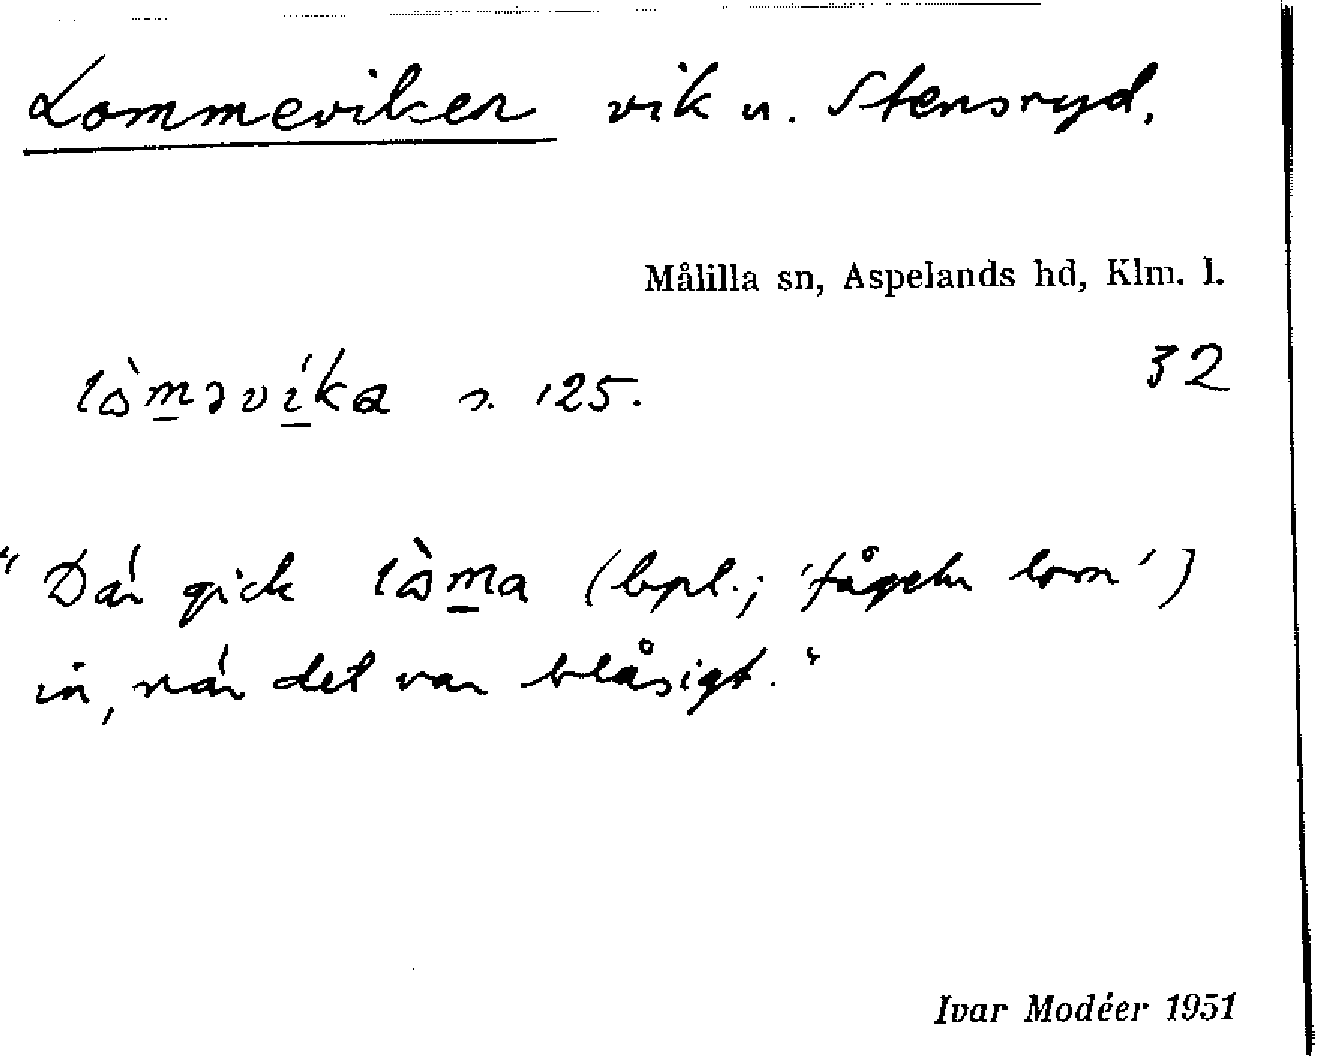 Lommeviken vik u. Stensryd.
Målilla sn, Aspelands hd, Klm. l.
lòməvíka s. 125.
32
"Där gick lòma (bpl.; 'fågeln lom')
in, när det var blåsigt."
Ivar Modéer 1951